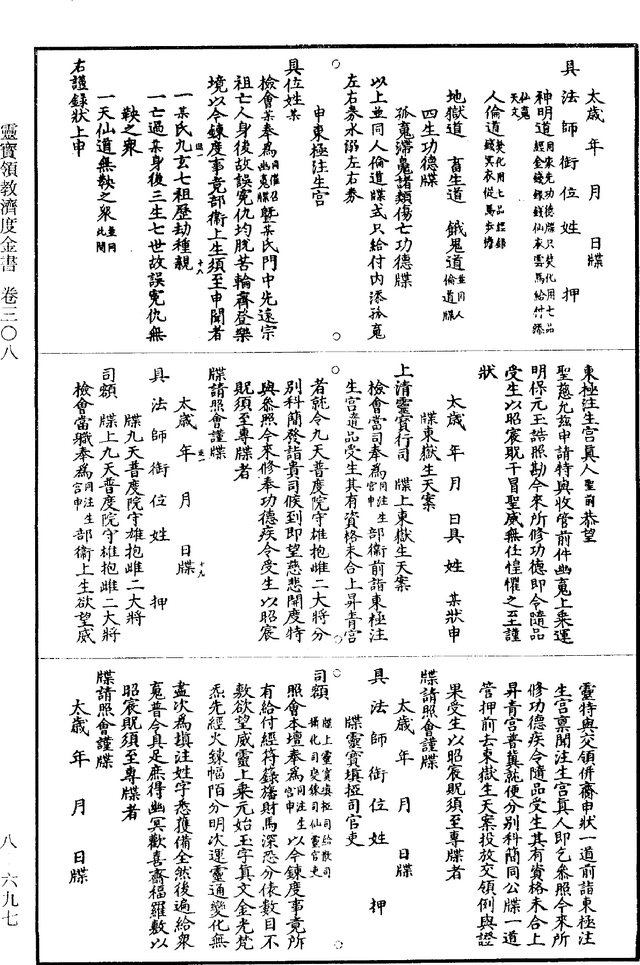 太歲　年　月　日牒
具法師銜位姓　押
神明道同來先功德牒只焚化用七品經金錢錄錢仙衣雲馬給付添
仙鬼天文
人倫道焚化用上品經錄錢冥衣從馬步擔
地獄道　畜生道　餓鬼道並同人倫道牒
四生功德牒
孤魂滯魄諸類傷亡功德牒
以上並同人倫道牒式只給付內添孤魂
左右券水溺左右券
申東極注生宮
具位姓某
檢會某奉為同催召幽魂牒暨某氏門中先遠宗
祖亡人身後故誤冤仇均脫苦輪齊登樂
境以今鍊度事竟部衛上生須至申聞者
一某氏九玄七祖歷劫種親
一亡過某身後三生七世故誤冤仇無
鞅之衆
一天仙道無鞅之衆並同此開
右謹錄狀上申
東極注生宮真人聖前恭望
聖慈允茲申請特與收管前件幽魂上乘運
明保元玉誥照勘今來所修功德即令隨品
受生以昭宸貺干冒聖威無任惶懼之至謹
狀
太歲　年　月　日具　姓　某狀申
牒東獄生天案
上清靈寶行司　牒上東獄生天案
檢會當司奉為同注生宮申部衛前詣東極注
生宮造品受生其有資格未合上昇青宮
者就令九天普度院守雄抱雌二大將分
別科簡發詣貴司候到即望慈悲開度特
與參照今來修奉功德疾令受生以昭宸
貺須至專牒者
牒請照會謹牒
太歲　年　月　日牒
具法師銜位姓　押
牒九天普度院守雄抱雌二大將
司額　牒上九天普度院守雄抱雌二大將
檢會當職奉為同注生宮申部衛上生欲望威
靈特與交領併齋申狀一道前詣東極注
生宮稟聞注生宮真人即乞參照今來所
修功德疾令隨品受生其有資格未合上
昇青宮普冀就便分別科簡同公牒一道
管押前去東獄生天案投放交領倒與證
果受生以昭宸貺須至專牒者
牒請照會謹牒
太歲　年　月　日牒
具法師銜位姓　押
牒靈寶填掗司官吏
司額　牒上靈寶填掗司給散司攝化司變鍊司仙靈官吏
照會本壇奉為同注生宮申以今鍊度事竟所
有給付經符籙旛財馬深恐分俵數目不
敷欲望威靈上乘元始玉字真文金光梵
炁先經火鍊幅陌分明次運靈通變化無
盡次為填注姓字悉獲備全然後遍給衆
魂普令具足庶得幽冥歡喜齋福羅敷以
昭宸貺須至專牒者
牒請照會謹牒
太歲　年　月　日牒
靈寶領教濟度金書　卷三〇八
八—六九七